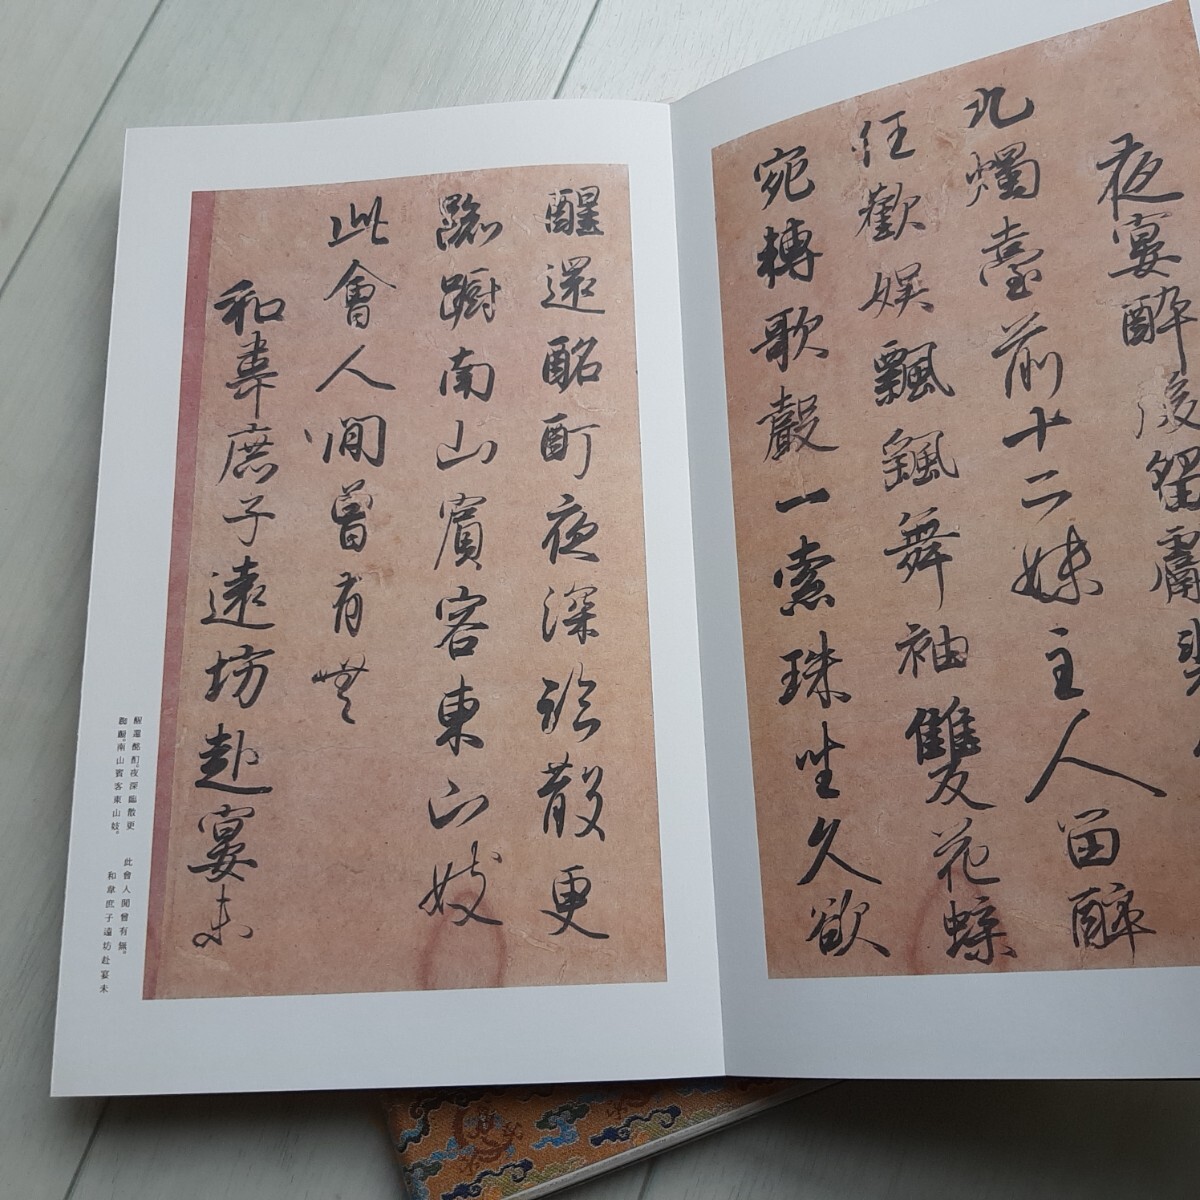 夜宴醉後留獻裴
九燭臺前十二姝主人留醉
任歡娛飄颻舞袖雙飛蝶
宛轉歌聲一索珠坐久欲
醒還酩酊夜深臨散更
踟躕南山賓客東山妓
此會人間曾有無
和韋庶子遠坊赴宴未
醒還酩酊。夜深臨散更
踟躕。南山賓客東山妓。
此會人間曾有無。
和韋庶子遠坊赴宴未